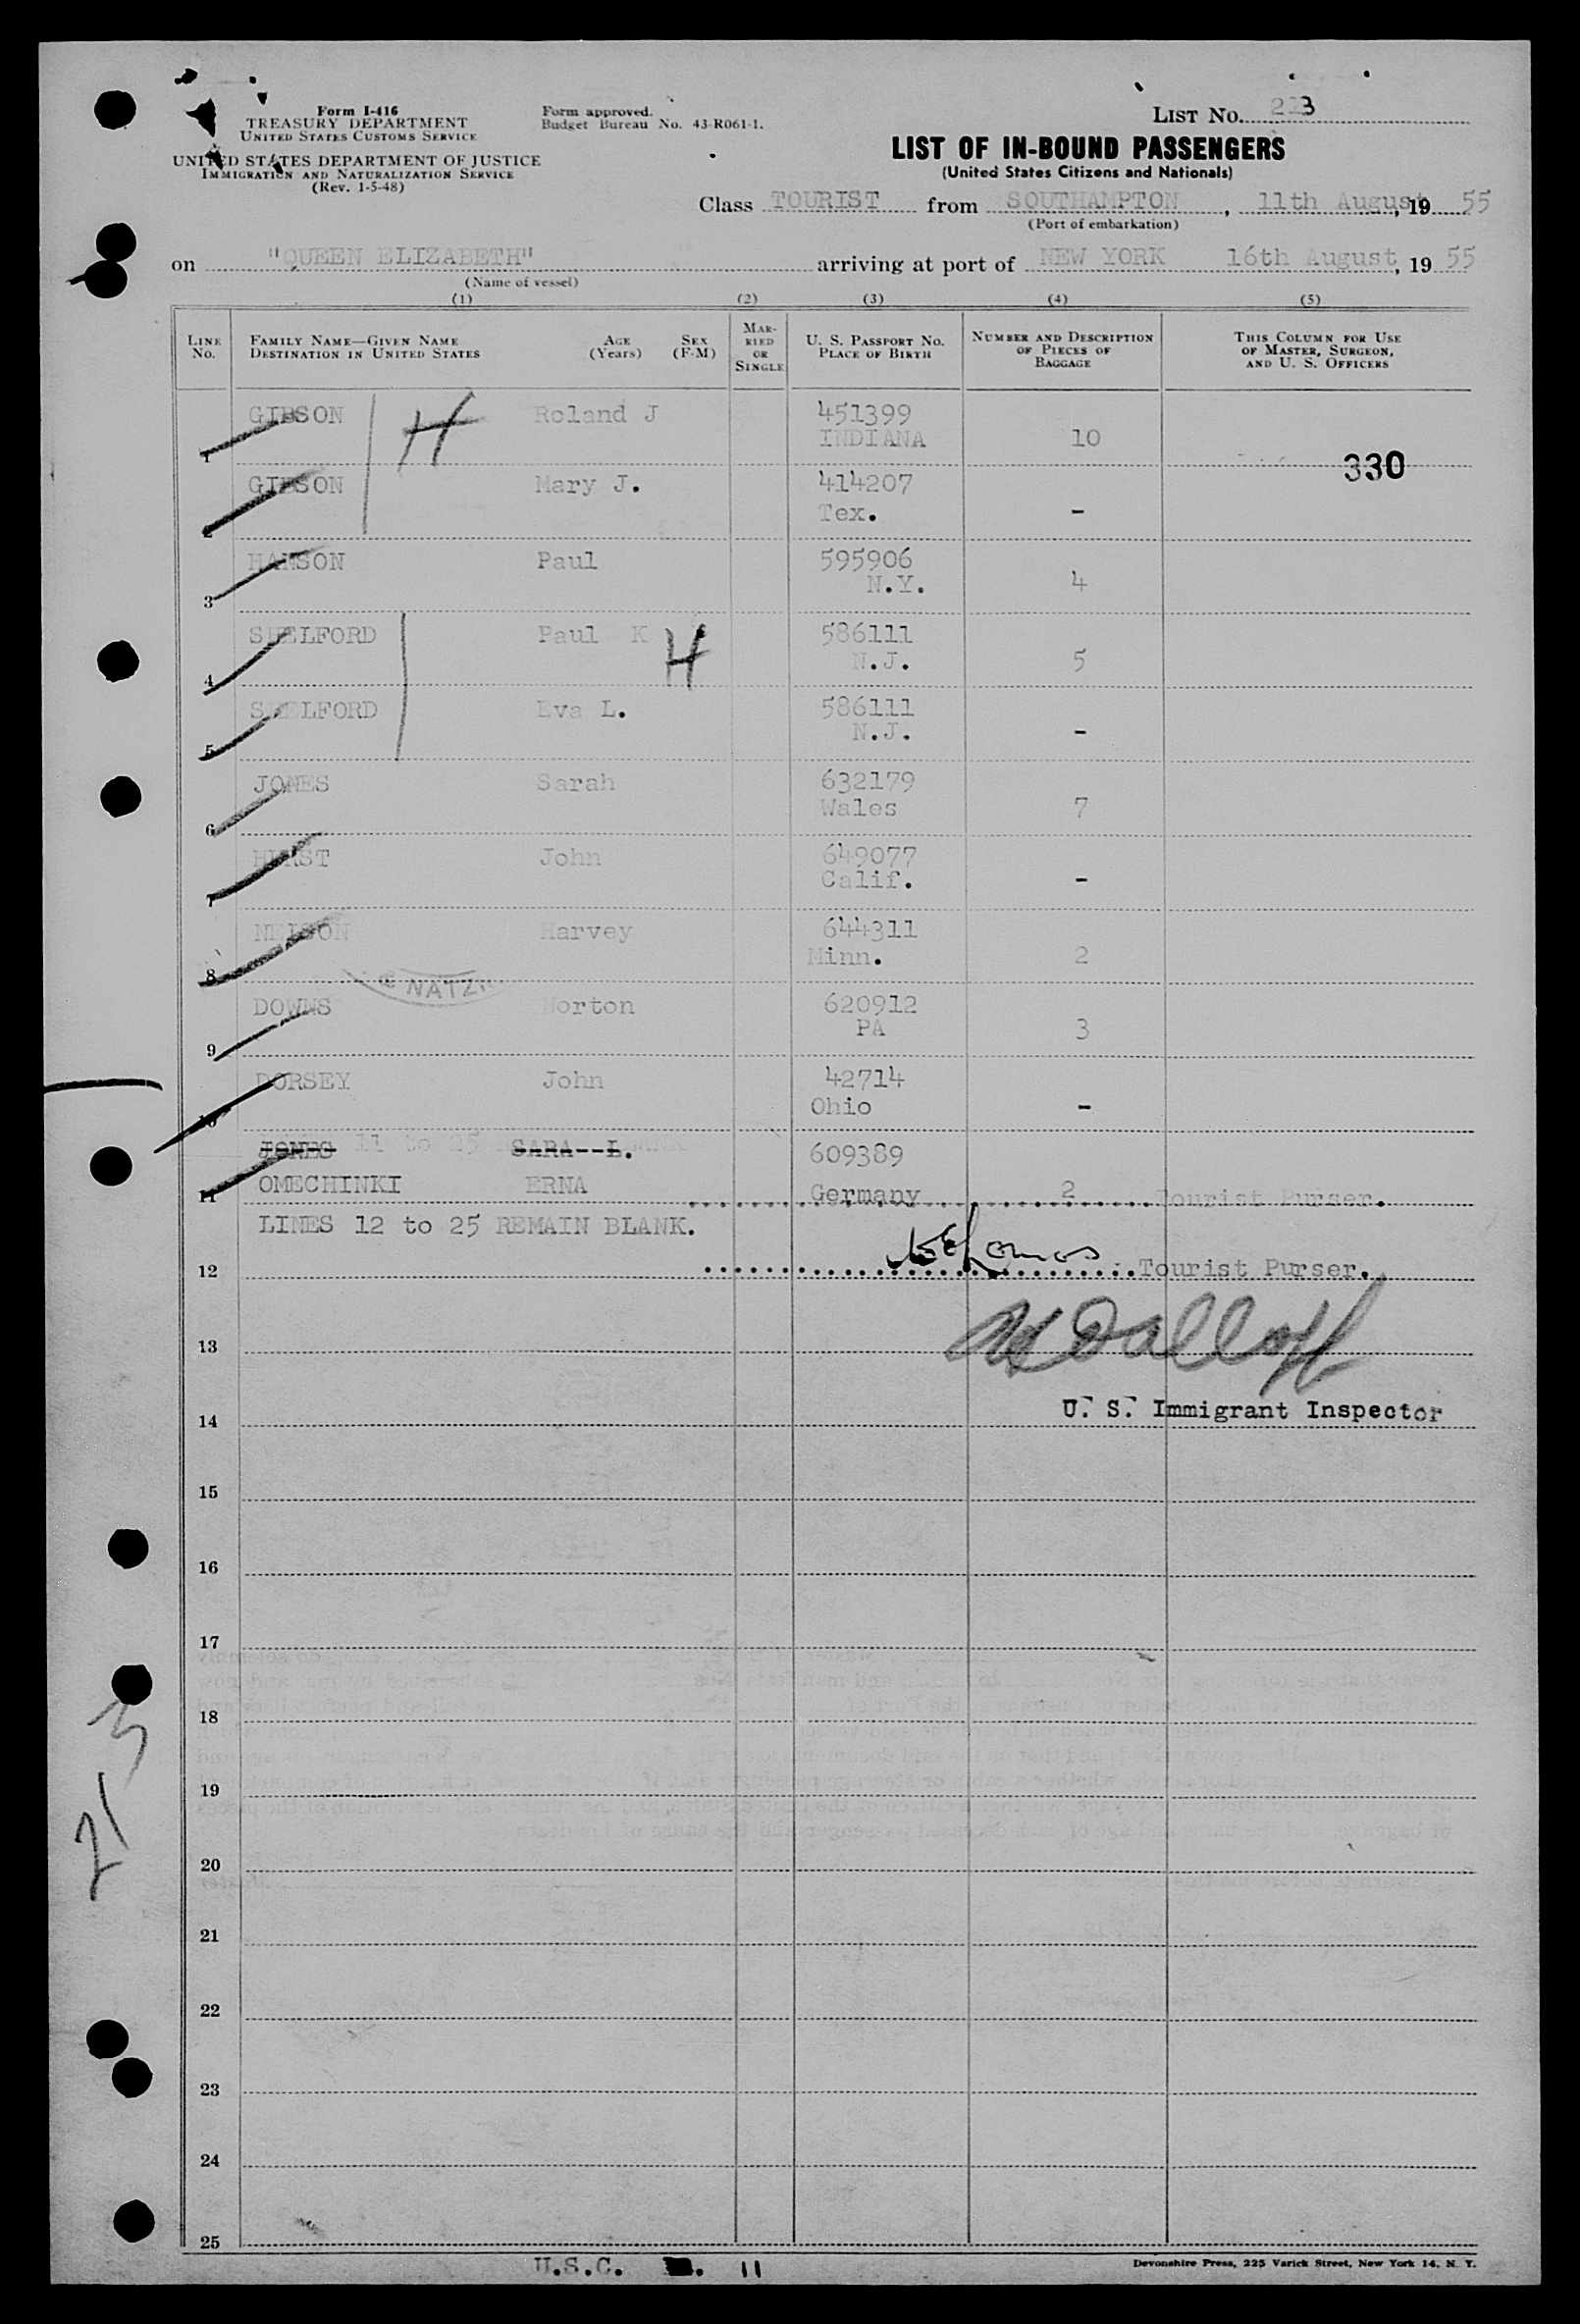 Form I-416
TREASURY DEPARTMENT
UNITED STATES CUSTOMS SERVICE
UNITED STATES DEPARTMENT OF JUSTICE
IMMIGRATION AND NATURALIZATION SERVICE
(Rev. 1-5-48)
Form approved.
Budget Bureau No. 43-R061-1.
LIST No.
LIST OF IN-BOUND PASSENGERS
(United States Citizens and Nationals)
Class TOURIST from SOUTHAMPTON, 11th August, 19 55
(Port of embarkation)
on "QUEEN ELIZABETH" arriving at port of NEW YORK 16th August, 19 55
(Name of vessel)
(1) (2) (3) (4) (5)
LINE No. FAMILY NAME—GIVEN NAME DESTINATION IN UNITED STATES AGE (Years) SEX (F-M) MARRIED OR SINGLE U. S. PASSPORT No. PLACE OF BIRTH NUMBER AND DESCRIPTION OF PIECES OF BAGGAGE THIS COLUMN FOR USE OF MASTER, SURGEON, AND U. S. OFFICERS
GIBSON H Roland J 451399
1 INDIANA 10
330
GIBSON Mary J. 414207
2 Tex. -
HANSON Paul 595906
3 N.Y. 4
SHELFORD Paul K H 586111
4 N.J. 5
SHELFORD Eva L. 586111
5 N.J. -
JONES Sarah 632179
6 Wales 7
HURST John 649077
7 Calif. -
NELSON Harvey 644311
8 Minn. 2
DOWNS Norton 620912
9 PA 3
DORSEY John 42714
10 Ohio -
JONES 11 to 25 SARA--L. 609389
11 OMECHINKI ERNA Germany 2 Tourist Purser.
LINES 12 to 25 REMAIN BLANK.
12 Tourist Purser.
13
U. S. Immigrant Inspector
14
15
16
17
18
19
20
21
22
23
24
25
U.S.C. 11
Devonshire Press, 225 Varick Street, New York 14, N. Y.